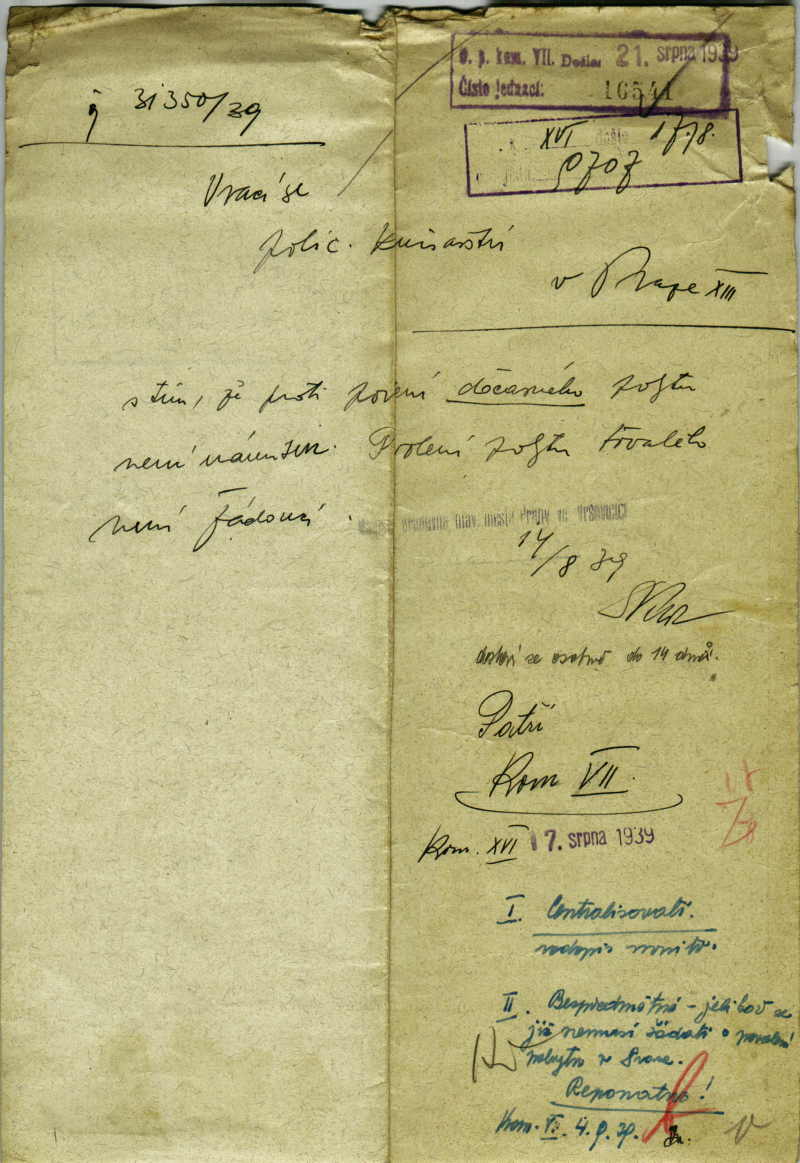 O. p. kom. VII. Došlo: 21. srpna 1939
Číslo jednací: 16541
XVI došlo 17./8.
9707
č 31350/39
Vrací se
polic. komisařství
v Praze XIII
s tím, že proti povolení dočasného pobytu
není námitek. Povolení pobytu trvalého
není žádoucí.
hlav. města Prahy ve Vršovicích
14/8 39
dostaví se osobně do 14 dnů.
Patří
Kom VII.
Kom. XVI 17. srpna 1939
I. Centralisovati.
II. Bezpředmětné – jelikož se
již nemusí žádati o povolení
pobytu v Praze.
Reponatur!
Kom. 4.9.39.